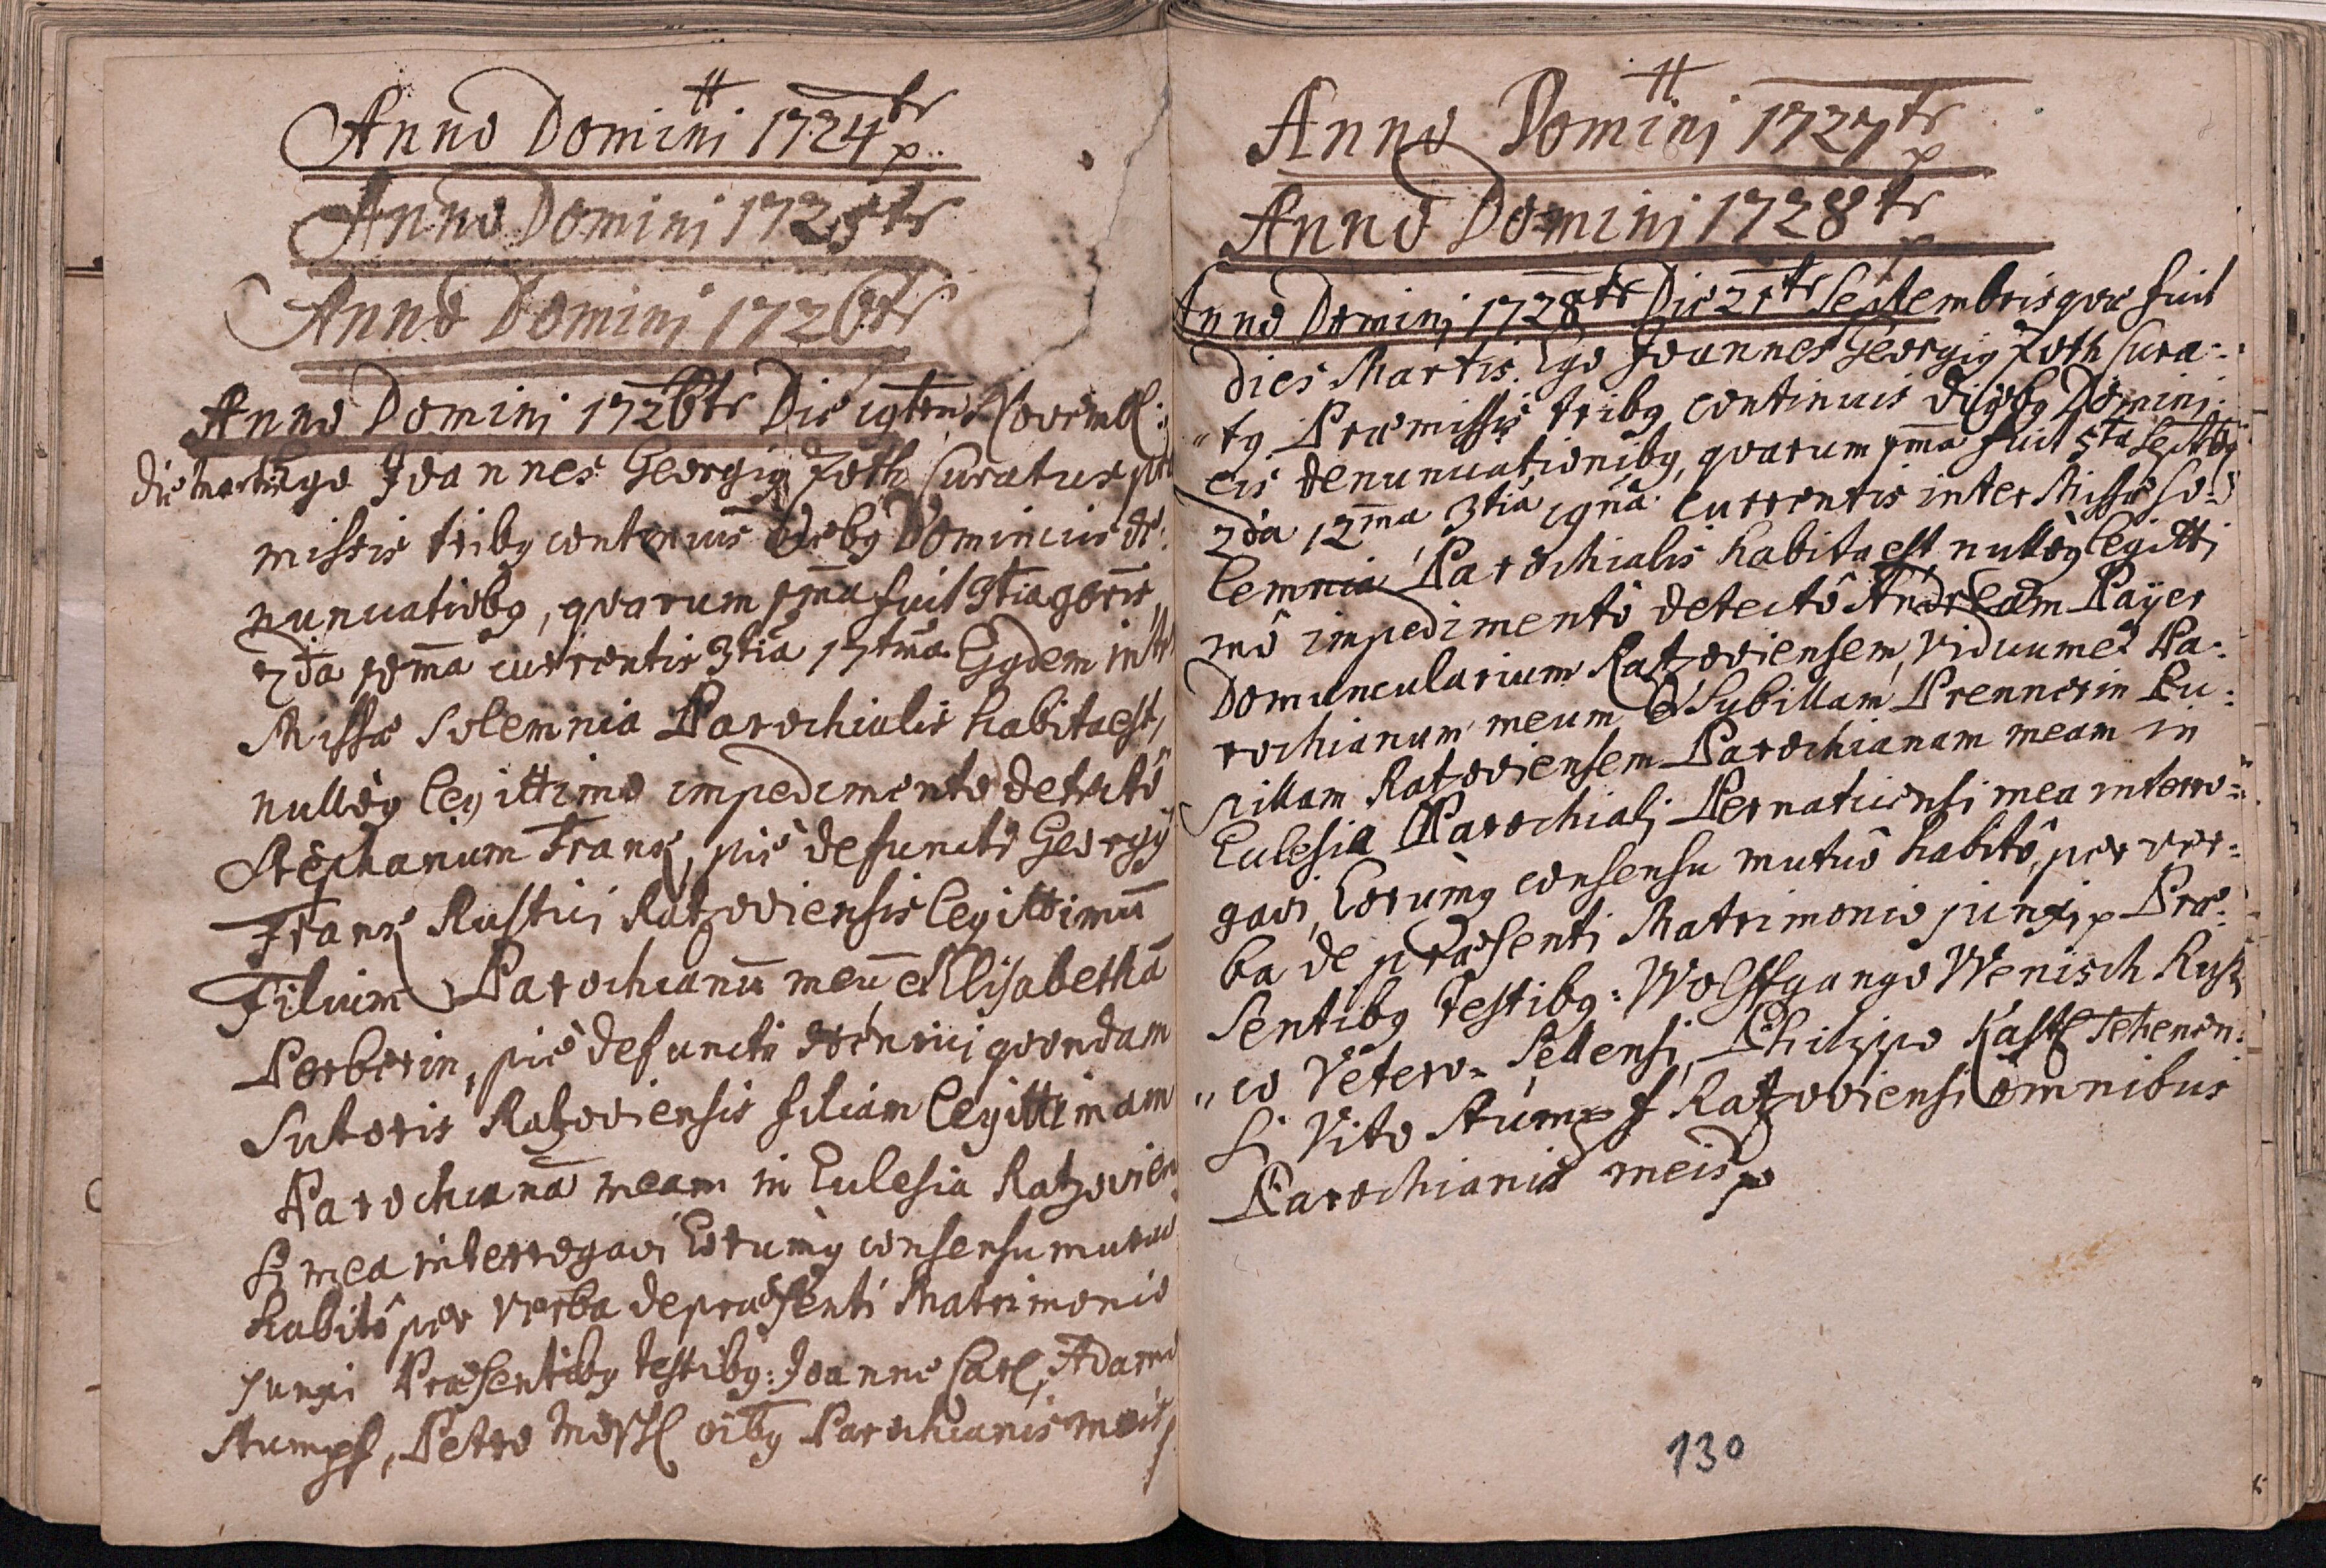 Anno Domini 1724tr p.
Anno Domini 1725tr
Anno Domini 1726tr
Anno Domini 1726tr Die 19tena Novembr:
die Martis Ego Joannes Georgig Zoth Curatus prae
missis tribg continuis diebg Dominicis de:
nunciatiobg, qvarum 1ma fuit 3tia 9bris,
2da 10ma currentis 3tia 17tma Ejgdem intr
Missae Solemnia Parochialis habita est,
nullòq legittimo impedimento detectô
Stephanum Frank, piè defuncti Georgÿ
Frank Rustici Ratzoviensis legittimū
Filium Parochianū meū, et Elisabethā
Perberin, piè defuncti Henrici qvondam
Sutoris Ratzoviensis filiam legittimam
Parochianā meam in Eclesia Ratzovien
si mea interrogavi Eorumq consensu mutuo
habitô per verba de praesenti Matrimonio
junxi Praesentibg testibg: Joanne Carl, Adamo
Stumpf, Petro Mössl oibg Parochianis meis p
Anno Domini 1727tr p
Anno Domini 1728tr p
Anno Domini 1728tr Die 21tr Septembris qvae fuit
dies Martis. Ego Joannes Georgig Zoth Cura:
"tg Praemissis tribg continuis diebg Domini:
cis denunciationibg, qvarum 1ma fuit 5ta Septbr
2da 12ma 3tia 19na currentis inter Missae So:
lemnia Parochialis habita est, nullòq legitti
mô impedimentô detectô Andream Payer
Domuncularium Ratzoviensem, viduum et Pa:
rochianum meum et Sybillam Prennerin Pu:
pillam Ratzoviensem Parochianam meam in
Eclesia Parochiali Pernaticensi mea interro:
gavi, Eorumq consensu mutuô habitô, per ver:
ba de praesenti Matrimonio junxi p Prae:
sentibg testibg: Wolffgango Wenisch Rusti
"co Vetero-Sedlensi, Philippo Kastl Tehenen:
si Vito Stumpf Ratzoviensi omnibus
Parochianis meis p
130